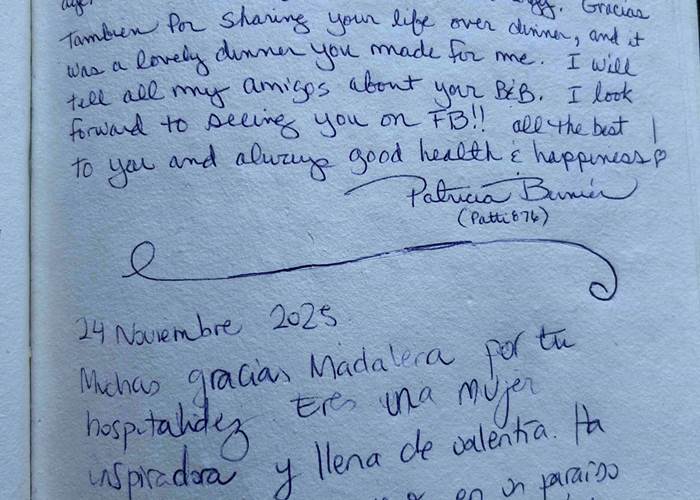 Gracias
Tambien por sharing your life over dinner, and it
was a lovely dinner you made for me. I will
tell all my amigos about your B&B. I look
forward to seeing you on FB!! all the best
to you and always good health & happiness
Patricia
(Patti876)
24 Noviembre 2025
Muchas gracias Madalera por tu
hospitalidez. Eres una mujer
inspiradora y llena de valentía. Ha
en un paraiso